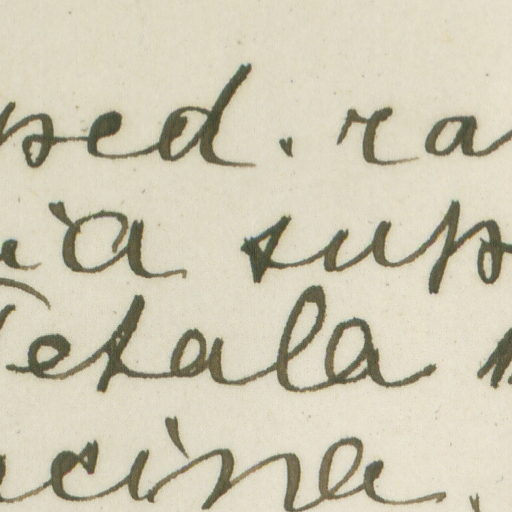 ped. ra
ia sup
Petala
acina.